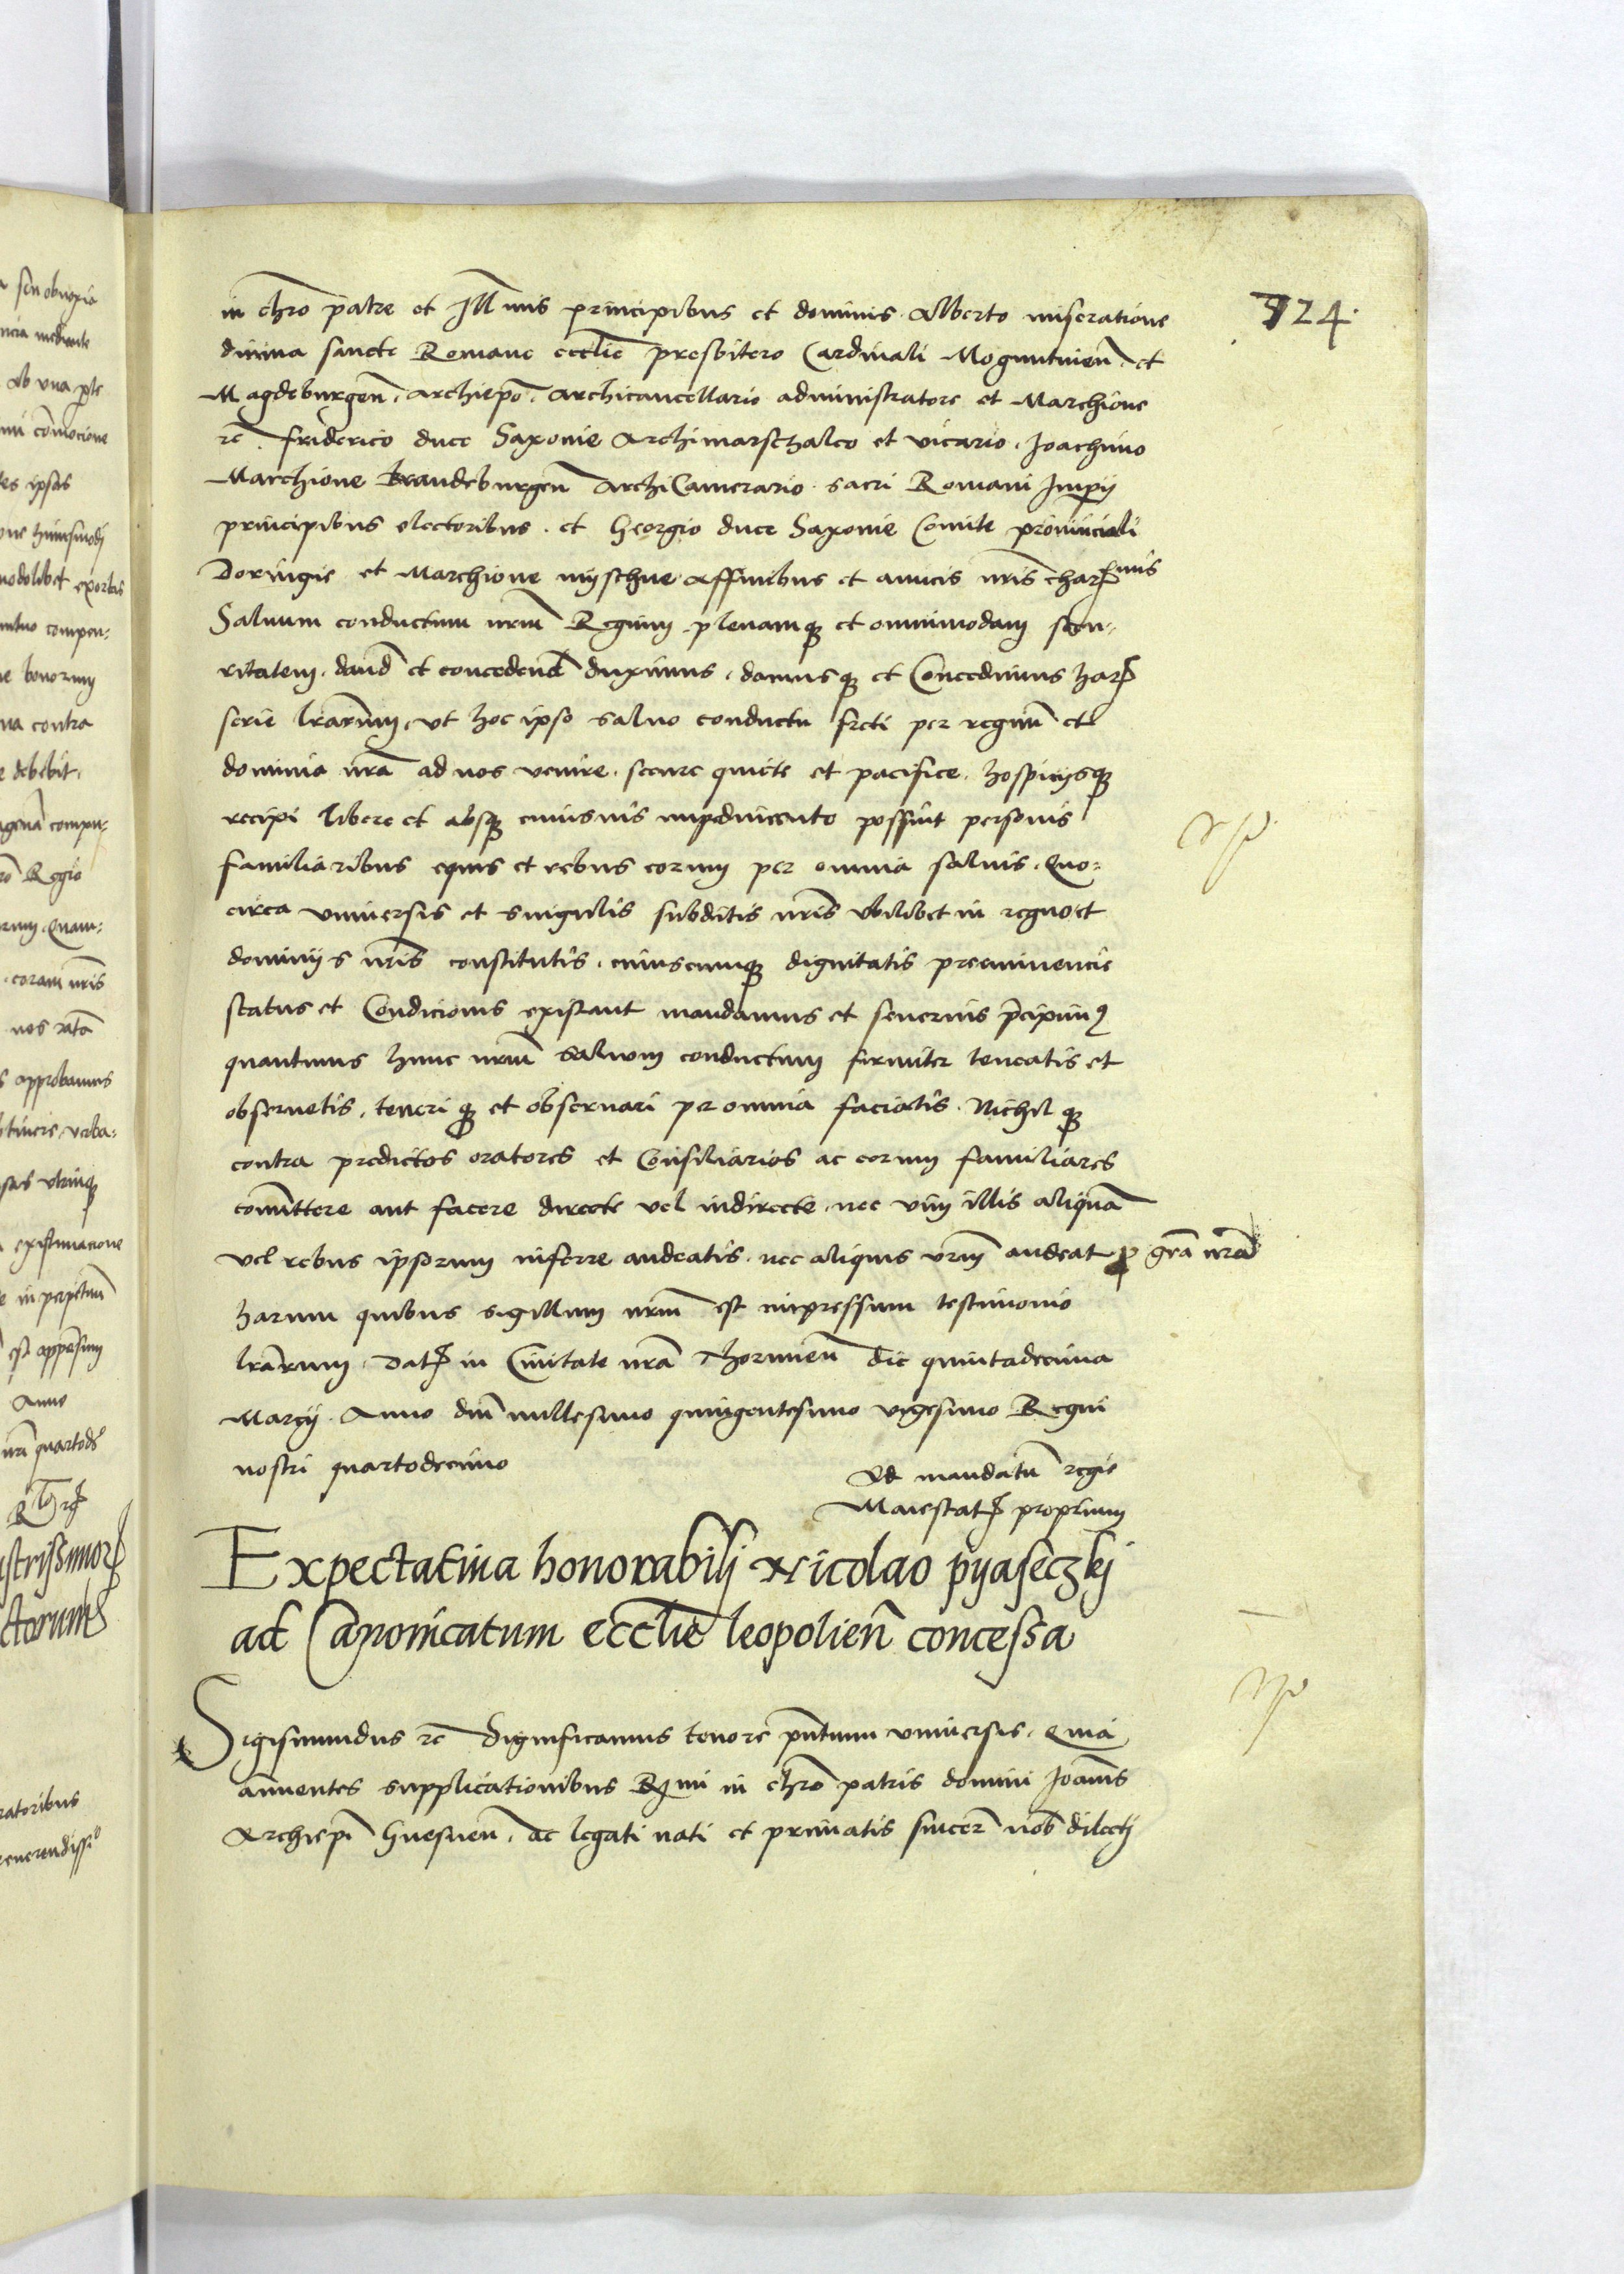 524.
in chro patre et Illmis principibus et dominis Alberto miseratione
diuina sancte Romane ecclie presbitero Cardinali Moguntinen et
Magdeburgen Archiepo Archicancellario administratore et Marchione
rc. Friderico duce Saxonie Archimarschalco et vicario Joachimo
Marchione brandeburgen ArchiCamerario sacri Romani Imperij
principibus electoribus et Georgio duce Saxonie Comite prouinciali
Doringie et Marchione myschne affinibus et amicis nris charissimis
Saluum conductum nrm Regium plenamque et omnimodam secu-
ritatem dand et concedend duximus damusque et Concedimus harum
serie lrarum, vt hoc ipso saluo conductu freti per regnum et
dominia nra ad nos venire secure quiete et pacifice hospicijsque
recipi libere et absque cuiusuis impedimento possint personis
familiaribus equis et rebus eorum per omnia saluis. Quo-
circa vniuersis et singulis subditis nris vbilibet in regno et
dominijs nris constitutis cuiuscumque dignitatis preeminencie
status et Condicionis existant mandamus et seuerius precipimus
quatinus hunc nrm saluum conductum firmiter teneatis et
obseruetis, teneri que et obseruari per omnia faciatis. Nichil que
contra predictos oratores et Consiliarios ac eorum familiares
comittere aut facere directe vel indirecte nec vim illis aliquam
vel rebus ipsorum inferre audeatis nec aliquis vrm audeat pro gra nra
harum quibus sigillum nrm est impressum testimonio
lrarum. Dat in Ciuitate nra Thorunien die quintadecima
Marcij Anno dni millesimo quingentesimo vigesimo Regni
nostri quartodecimo
Ad mandatum regie
Maiestatis proprium
Expectatiua honorabilj Nicolao pyaseczkj
ad Canonicatum ecclie leopolien concessa
Sigismundus rc Significamus tenore pntium vniuersis. Quia
annuentes supplicationibus Rmi in chro patris domini Joannis
Archiepi Gnesnen, ac legati nati et primatis sincere nob dilecti